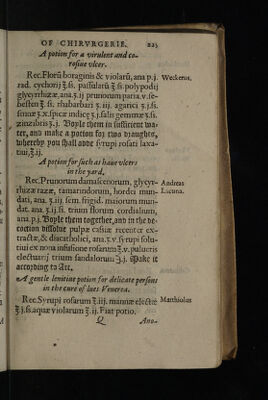 OF CHIRVRGERIE. 225
A potion for a virulent and cor-
rosiue vlcer.
Rec. Florũ boraginis & violarũ, ana p.j. Weckerus.
rad. cychorij ʒ.ſs. paſſularũ ʒ.ſs. polypodij
glycyrrhizæ, ana.ʒ.ij prunorum paria.v. ſe-
beſten ʒ.ſs. rhabarbari ʒ.iij. agarici ʒ.j.ſs.
ſennæ ʒ.x. ſpicæ indicæ ʒ.j. ſalis gemmæ ʒ.ſs.
zinzabris ʒ.j. Boyle them in ſufficient wa-
ter, and make a potion foꝛ two dꝛaughts,
whereby you ſhall adde ſyrupi roſati laxa-
tiui, ʒ.ij.
A potion for ſuch as haue vlcers
in the yard.
Rec. Prunorum damaſcenorum, glycyr- Andreas
rhizæ razæ, tamarindorum, hordei mun- Lacuna.
dati, ana. ʒ.iij. ſem. frigid. maiorum mun-
dat. ana. ʒ.ij.ſs. trium florum cordialium,
ana p.j. Boyle them together, and in the de-
coction diſſolue pulpæ caſiæ recenter ex-
tractæ, & diacatholici, ana.ʒ.v. ſyrupi ſolu-
tiui ex noua infuſione roſarum ʒ.v. pulueris
electuarij trium ſandalorum ℈.j. Make it
accoꝛding to Art.
A gentle lenitiue potion for delicate perſons
in the cure of lues Venerea.
Rec. Syrupi roſarum ʒ.iij. mannæ electæ Matthiolus
ʒ.j.ſs. aquæ violarum ʒ.ij. Fiat potio.
Q Ano-